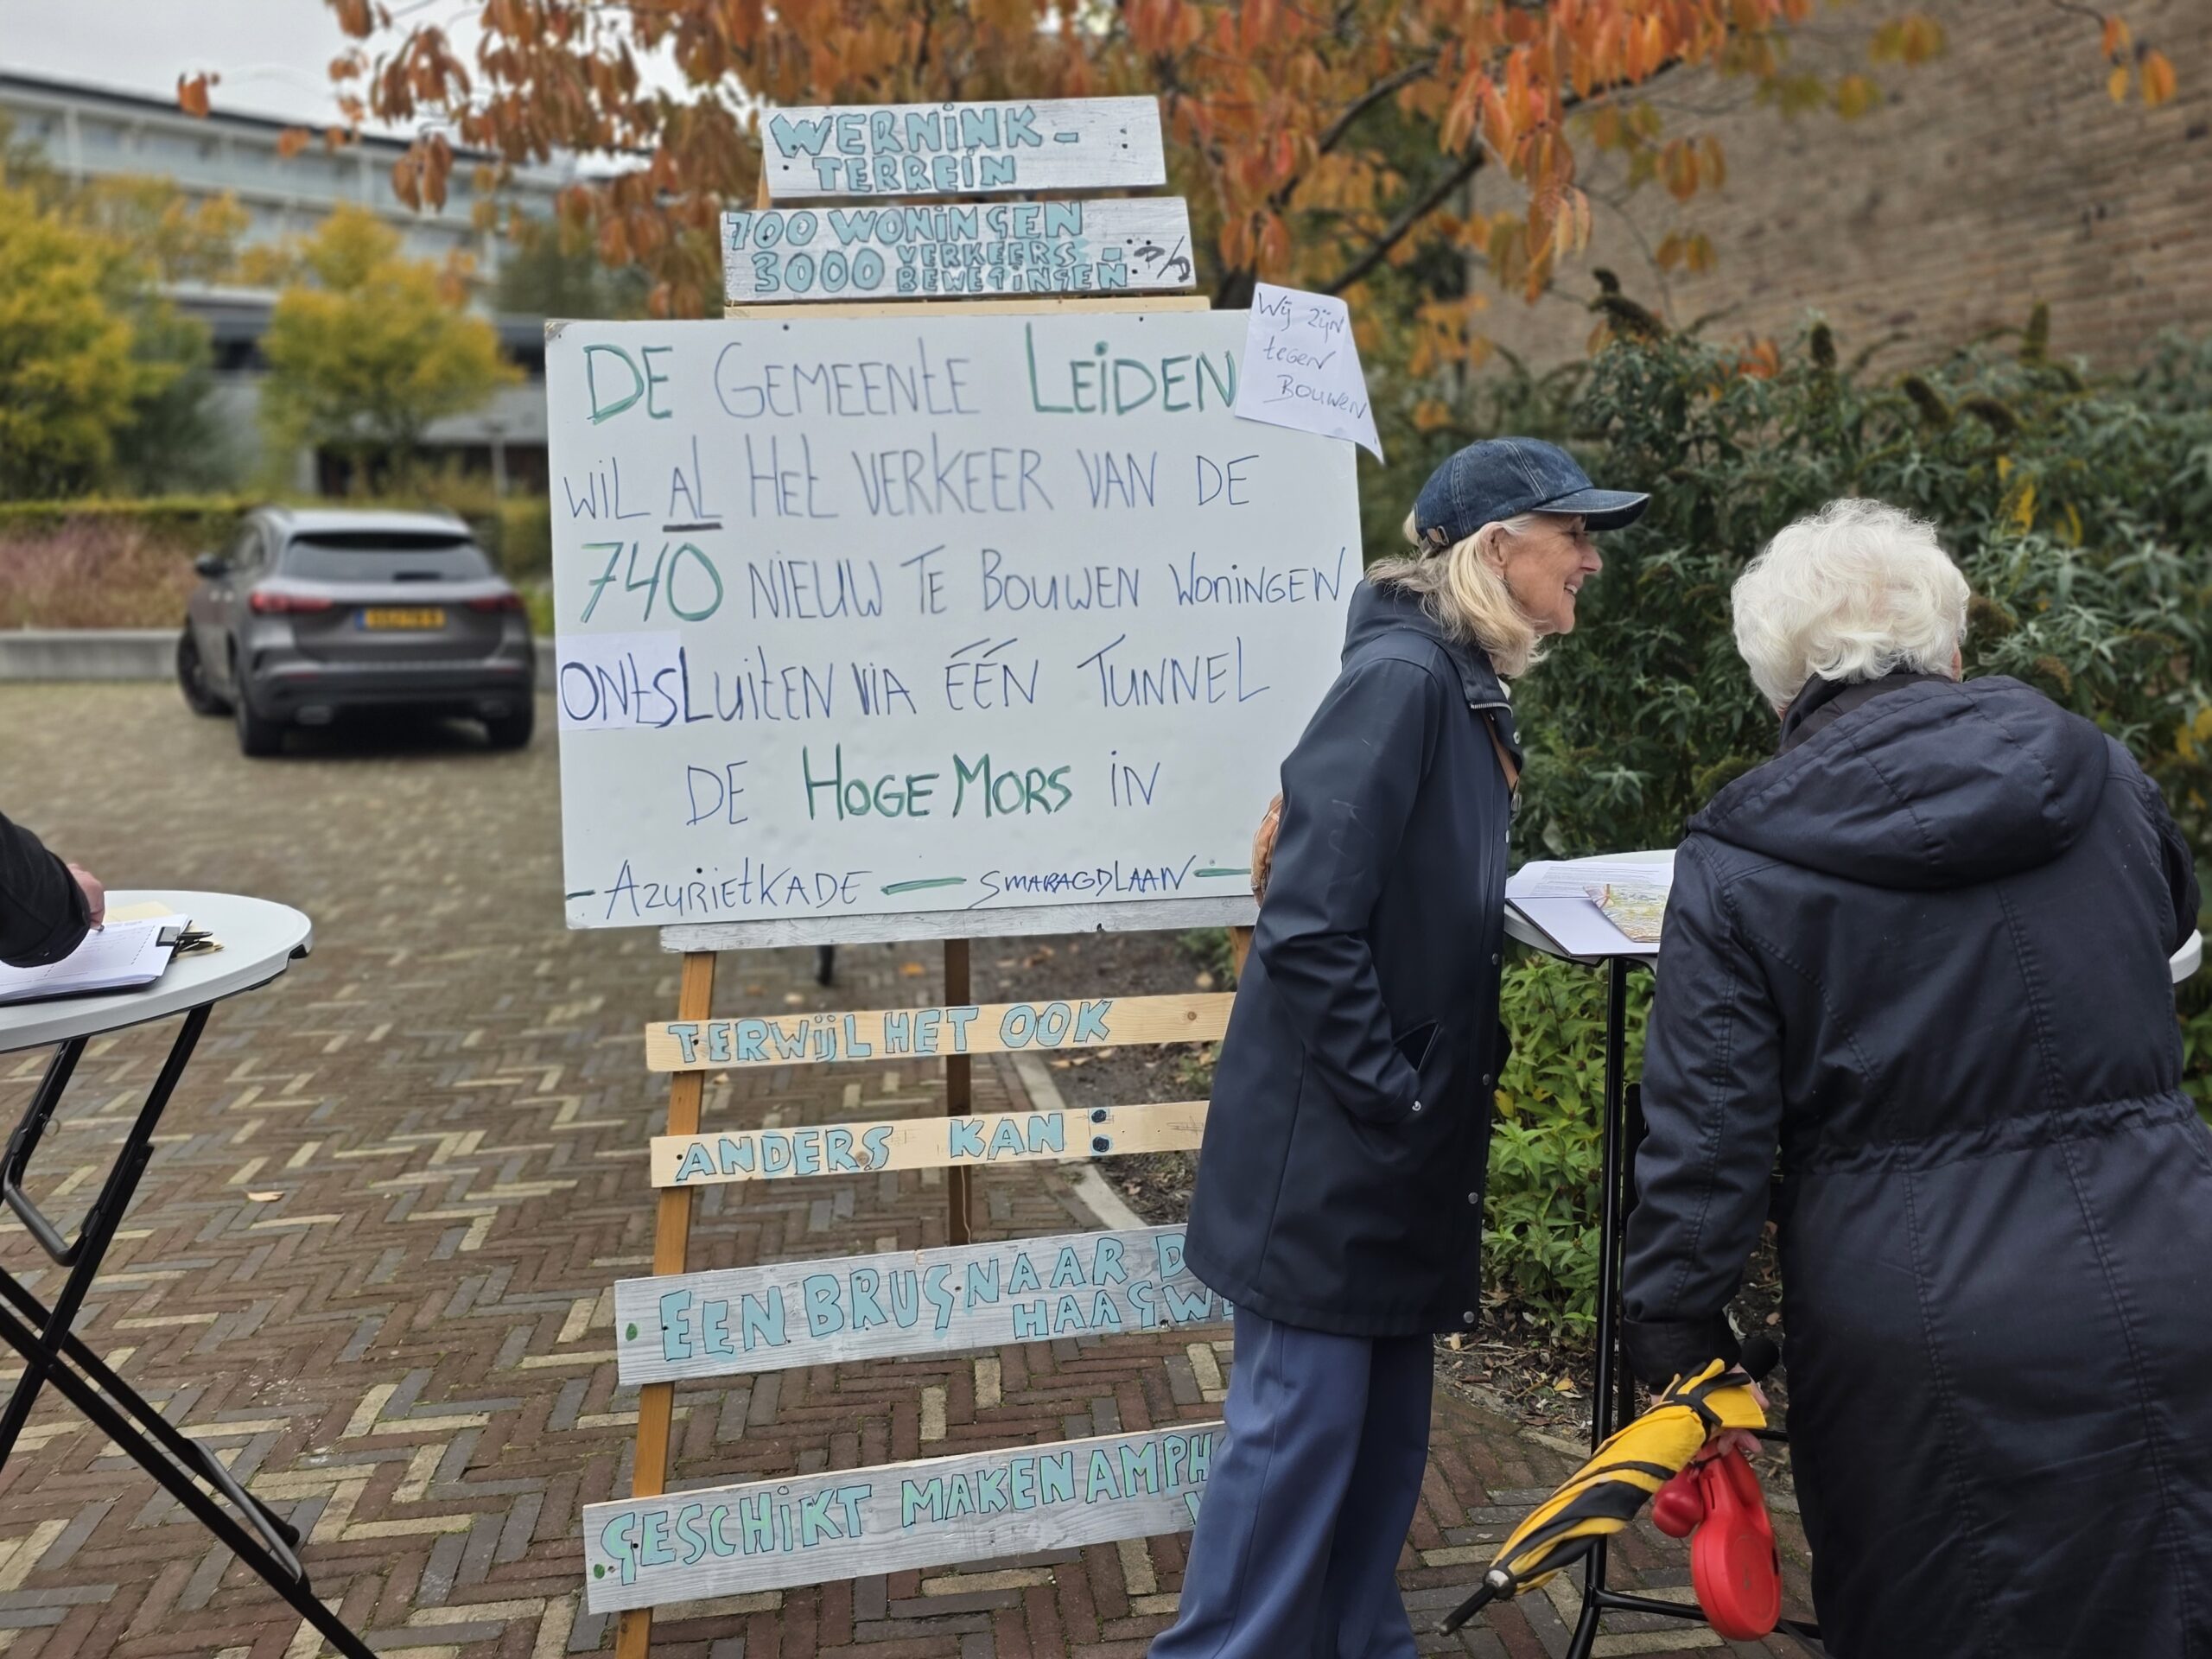 WERNINK-
TERREIN :
700 WONINGEN
3000 VERKEERS-
BEWEGINGEN
DE GEMEENTE LEIDEN
WIL AL HET VERKEER VAN DE
740 NIEUW TE BOUWEN WONINGEN
ONTSLUITEN VIA ÉÉN TUNNEL
DE HOGE MORS IN
- AZURIETKADE — SMARAGDLAAN —
Wij zijn
tegen
Bouwen
TERWIJL HET OOK
ANDERS KAN :
EEN BRUG NAAR D
HAAGW
GESCHIKT MAKEN AMPH